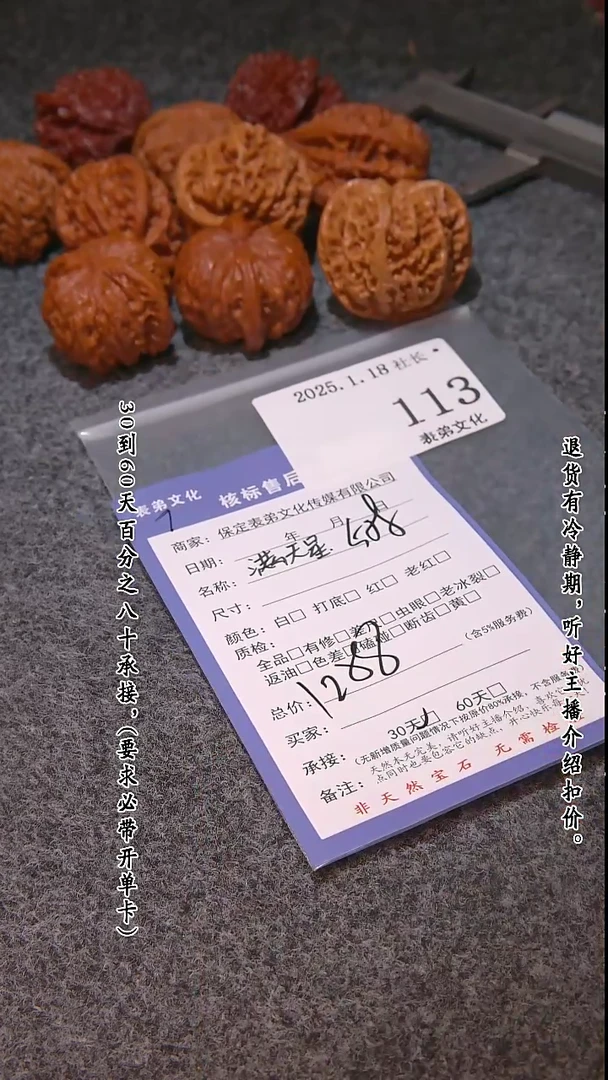 2025.1.18 社长
113
表弟文化
表弟文化 核标售后
商家：保定表弟文化传媒有限公司
日期： 年 月 日
名称：满天星
尺寸：
颜色：白□ 打底□ 红□ 老红□
质检：全品□有修□ 虫眼□老冰裂□
返油□色差□磕碰□断齿□黄□
总价：1288 （含5%服务费）
买家：
承接：30天 60天□
（无新增质量问题情况下按原价80%承接，不含服务费）
备注：天然木无完美，请听好主播介绍，喜欢它的优
点同时也要包容它的缺点，开心快乐每一天
非天然宝石 无需检
30到60天百分之八十承接，（要求必带开单卡）
退货有冷静期，听好主播介绍扣价。